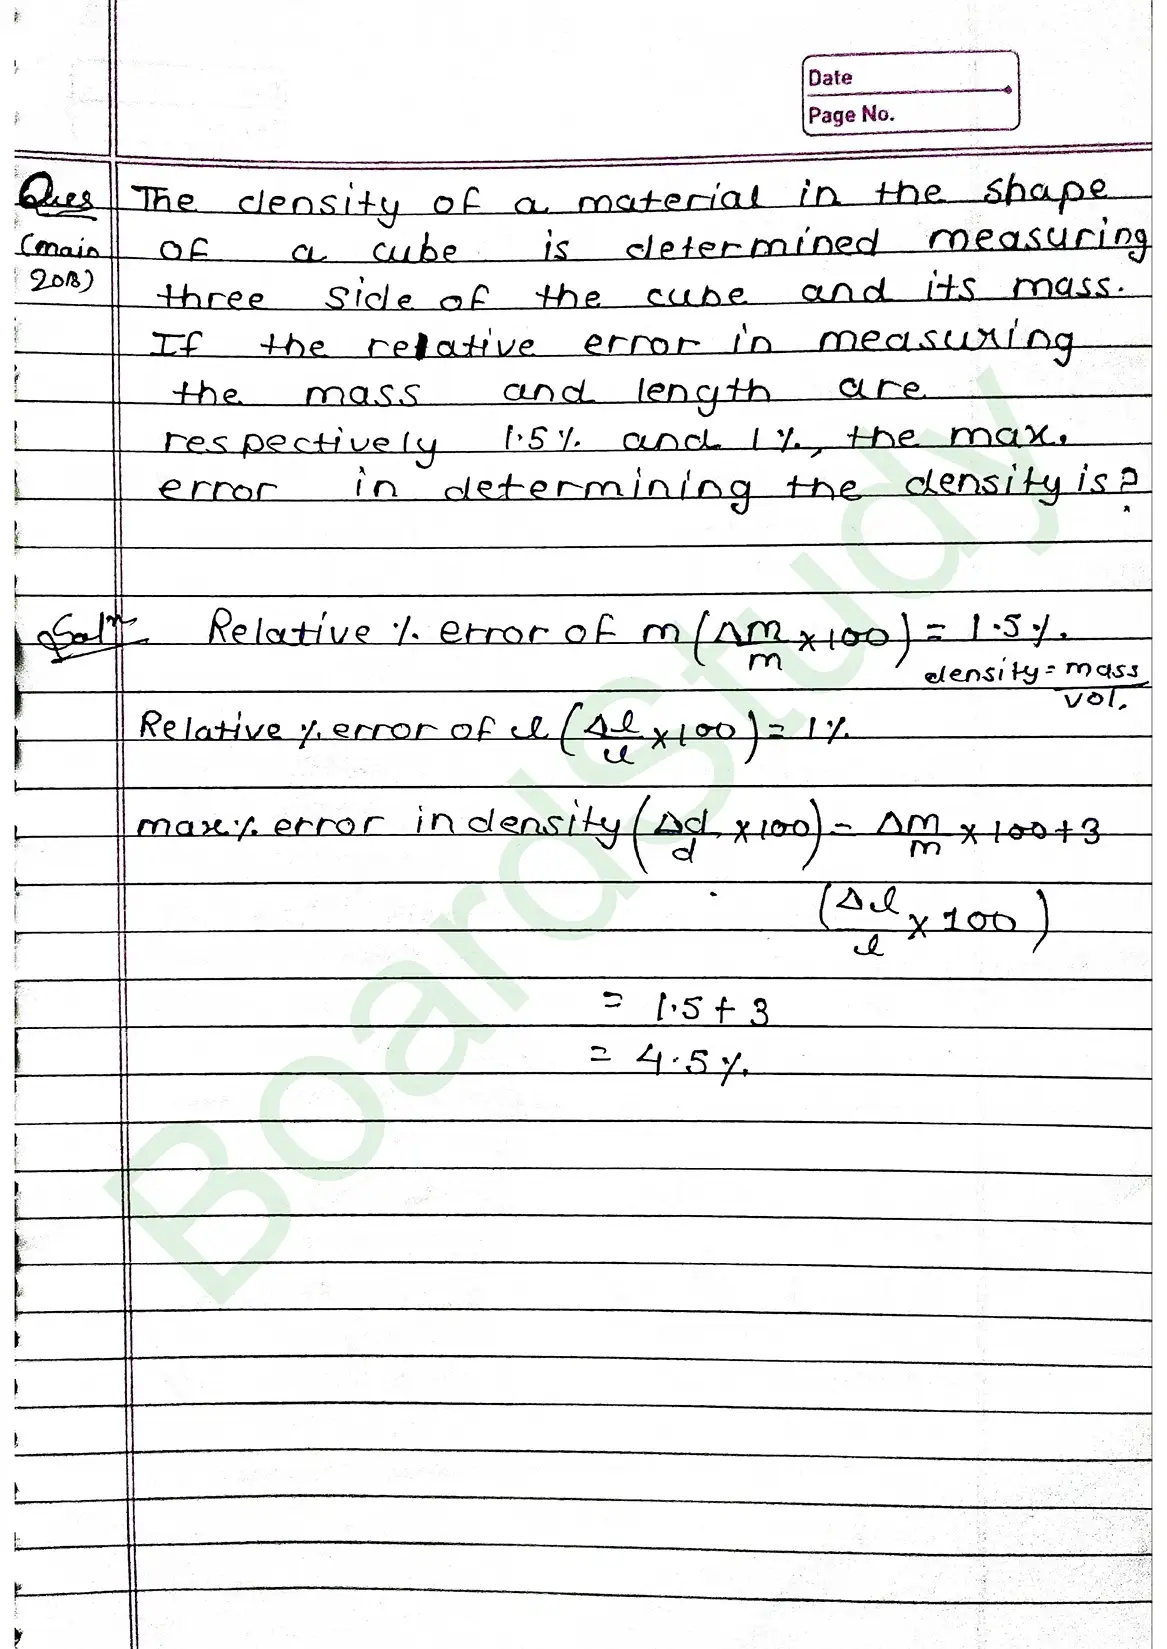 Date
Page No.
Ques The density of a material in the shape
(main of a cube is determined measuring
2018) three side of the cube and its mass.
If the relative error in measuring
the mass and length are
respectively 1.5% and 1%, the max.
error in determining the density is?
Solⁿ Relative % error of m (Δm/m × 100) = 1.5%.
density = mass/vol.
Relative % error of l (Δl/l × 100) = 1%
max % error in density (Δd/d × 100) = Δm/m × 100 + 3
(Δl/l × 100)
= 1.5 + 3
= 4.5%.
BoardStudy